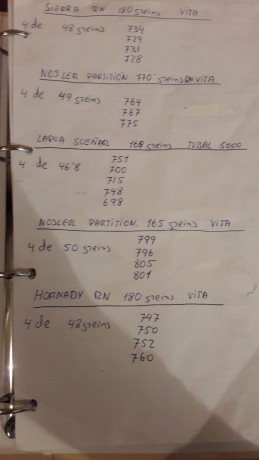 SIERRA RN 180 greins VITA
4 de 48 greins 734
729
731
728
NOSLER PARTITION 170 greins VITA
4 de 49 greins 764
767
775
LAPUA SCENAR 168 greins TUBAL 5000
4 de 46'8 751
700
715
748
698
NOSLER PARTITION 165 greins VITA
4 de 50 greins 799
796
805
801
HORNADY RN 180 greins VITA
4 de 48 greins 747
750
752
760